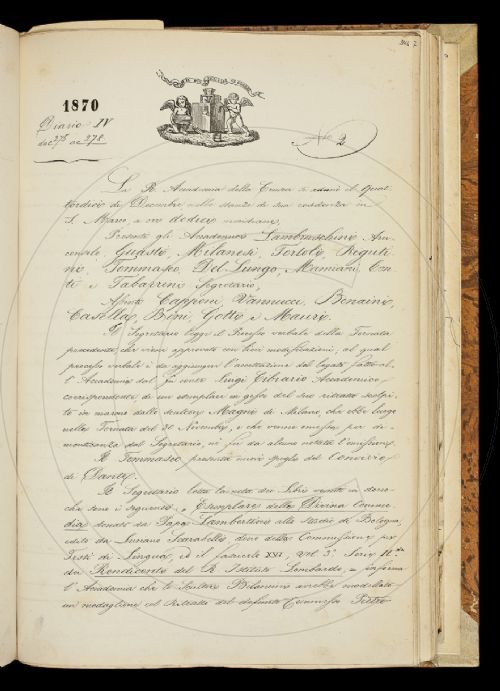 1870
Diario IV
dac 278 ac 278
N.o 2
La R. Accademia della Crusca si adunò il quat-
tordici di Decembre nelle stanze di sua residenza in
S. Marco, a ore dodici meridiane,
Presenti gli Accademici Lambruschini Arci-
consolo, Guasti, Milanesi, Tortoli, Riguti-
ni, Tommaseo, Del Lungo, Mamiani, Con-
ti e Tabarrini Segretario,
Assenti Capponi, Vannucci, Bonaini,
Casella, Bini, Gotti e Mauri.
Il Segretario legge il Processo verbale della Tornata
precedente, che viene approvato con lievi modificazioni, al qual
processo verbale è da aggiungere l'accettazione del legato fatto al-
l'Accademia dal fu conte Luigi Cibrario Accademico
corrispondente, di un esemplare in gesso del suo ritratto scolpi-
to in marmo dallo scultore Magni di Milano, che ebbe luogo
nella Tornata del 30 Novembre, e che venne omessa per di-
menticanza dal Segretario, nè fu da alcuno notata l'omissione.
Il Tommaseo presenta nuovi spogli del Convivio
di Dante.
Il Segretario letta la nota dei Libri venuti in dono
che sono i seguenti, Esemplare della Divina Comme-
dia donato da Papa Lambertini allo Studio di Bologna,
edito da Luciano Scarabelli, dono della Commissione pei
Testi di Lingua, ed il fascicolo XVI, vol. 3.o Serie II.da
dei Rendiconti del R. Istituto Lombardo, informa
l'Accademia che lo Scultore avrebbe modellato
un medaglione col ritratto del defunto Commesso Pietro